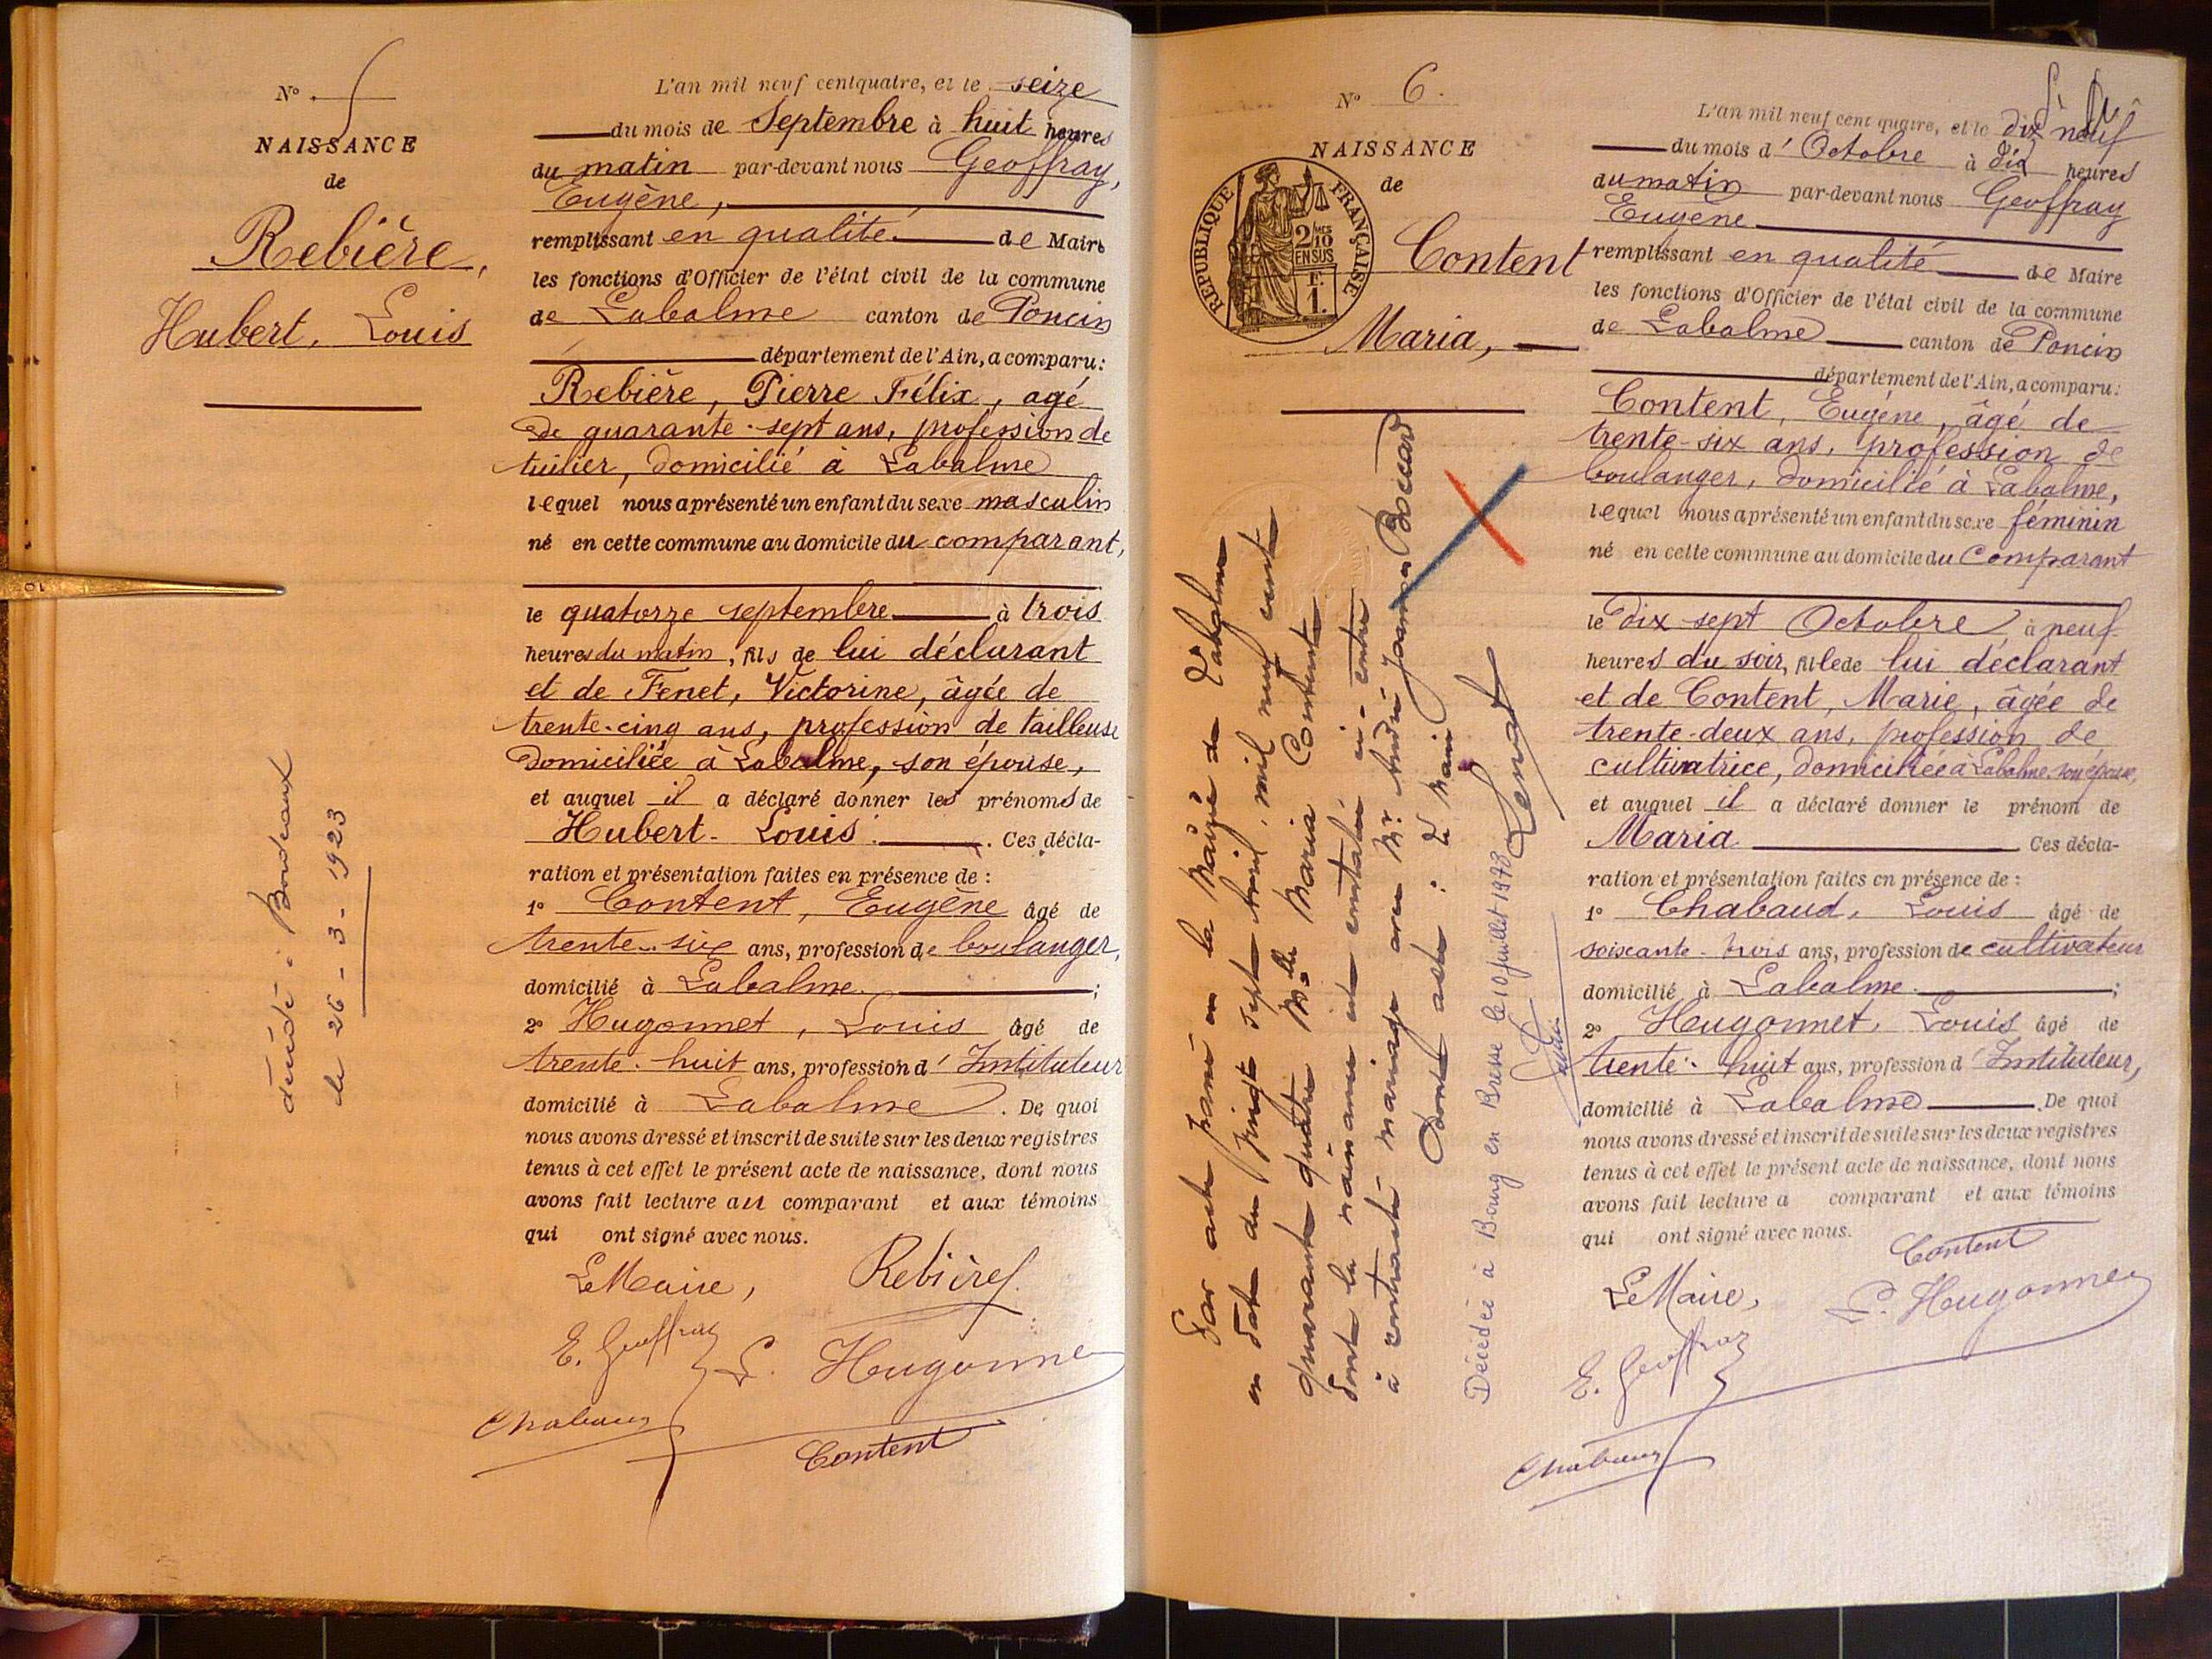 N° 5
NAISSANCE
de
Rebière,
Hubert, Louis
décédé à Bordeaux
le 26 - 3 - 1923
L'an mil neuf cent quatre, et le seize
du mois de Septembre à huit heures
du matin par-devant nous Geoffray,
Eugène,
remplissant en qualité de Maire
les fonctions d'Officier de l'état civil de la commune
de Labalme canton de Poncin
département de l'Ain, a comparu :
Rebière, Pierre Félix, agé
de quarante-sept ans, profession de
tuilier, domicilié à Labalme
lequel nous a présenté un enfant du sexe masculin
né en cette commune au domicile du comparant,
le quatorze septembre à trois
heures du matin, fils de lui déclarant
et de Fenet, Victorine, âgée de
trente-cinq ans, profession de tailleuse
domiciliée à Labalme, son épouse,
et auquel il a déclaré donner les prénoms de
Hubert-Louis. Ces décla-
ration et présentation faites en présence de :
1° Content, Eugène âgé de
trente-six ans, profession de boulanger,
domicilié à Labalme ;
2° Hugonnet, Louis âgé de
trente-huit ans, profession d'Instituteur
domicilié à Labalme. De quoi
nous avons dressé et inscrit de suite sur les deux registres
tenus à cet effet le présent acte de naissance, dont nous
avons fait lecture au comparant et aux témoins
qui ont signé avec nous.
Le Maire, Rebière f.
E. Geoffray L. Hugonnet
Chabaud
Content
N° 6.
NAISSANCE
de
Content
Maria,
REPUBLIQUE FRANÇAISE
2/10 EN SUS
F. 1.
Par acte passé en la Mairie de Labalme
en date du vingt sept Avril, mil neuf cent
quarante quatre Mlle Maria Content
dont la naissance est constatée ci-contre
à contracté mariage avec Mr André Bouard
Dont acte : Le Maire
Décédée à Bourg en Bresse le 10 juillet 1978
L'an mil neuf cent quatre, et le dix neuf
du mois d'Octobre à dix heures
du matin par-devant nous Geoffray
Eugène
remplissant en qualité de Maire
les fonctions d'Officier de l'état civil de la commune
de Labalme canton de Poncin
département de l'Ain, a comparu :
Content, Eugène, âgé de
trente-six ans, profession de
boulanger, domicilié à Labalme,
lequel nous a présenté un enfant du sexe féminin
né en cette commune au domicile du Comparant
le dix sept Octobre à neuf
heures du soir, fille de lui déclarant
et de Content, Marie, âgée de
trente-deux ans, profession de
cultivatrice, domiciliée à Labalme, son épouse,
et auquel il a déclaré donner le prénom de
Maria Ces décla-
ration et présentation faites en présence de :
1° Chabaud, Louis âgé de
soixante-trois ans, profession de cultivateur
domicilié à Labalme ;
2° Hugonnet, Louis âgé de
trente-huit ans, profession d'Instituteur,
domicilié à Labalme. De quoi
nous avons dressé et inscrit de suite sur les deux registres
tenus à cet effet le présent acte de naissance, dont nous
avons fait lecture a comparant et aux témoins
qui ont signé avec nous.
Content
Le Maire, L. Hugonnet
E. Geoffray
Chabaud